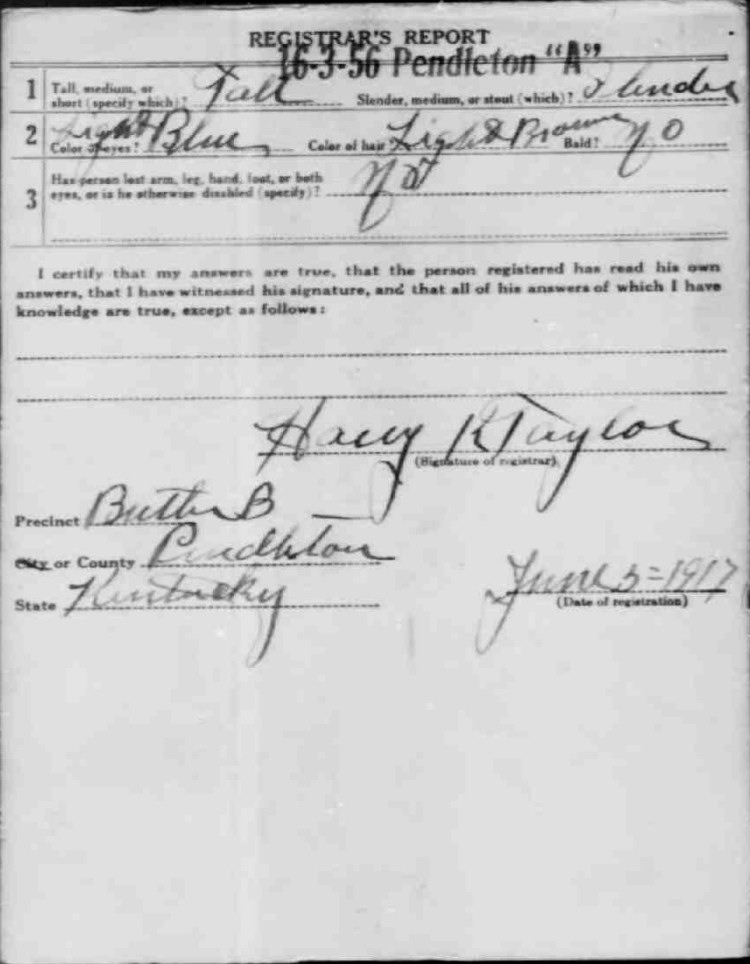 REGISTRAR'S REPORT
16-3-56 Pendleton "A"
1 Tall, medium, or short (specify which)? Tall Slender, medium, or stout (which)? Slender
2 Color of eyes? Light Blue Color of hair Light Brown Bald? No
3 Has person lost arm, leg, hand, foot, or both
eyes, or is he otherwise disabled (specify)? No
I certify that my answers are true, that the person registered has read his own
answers, that I have witnessed his signature, and that all of his answers of which I have
knowledge are true, except as follows:
Harry K Taylor
(Signature of registrar)
Precinct Butler B
City or County Pendleton
State Kentucky June 5=1917
(Date of registration)